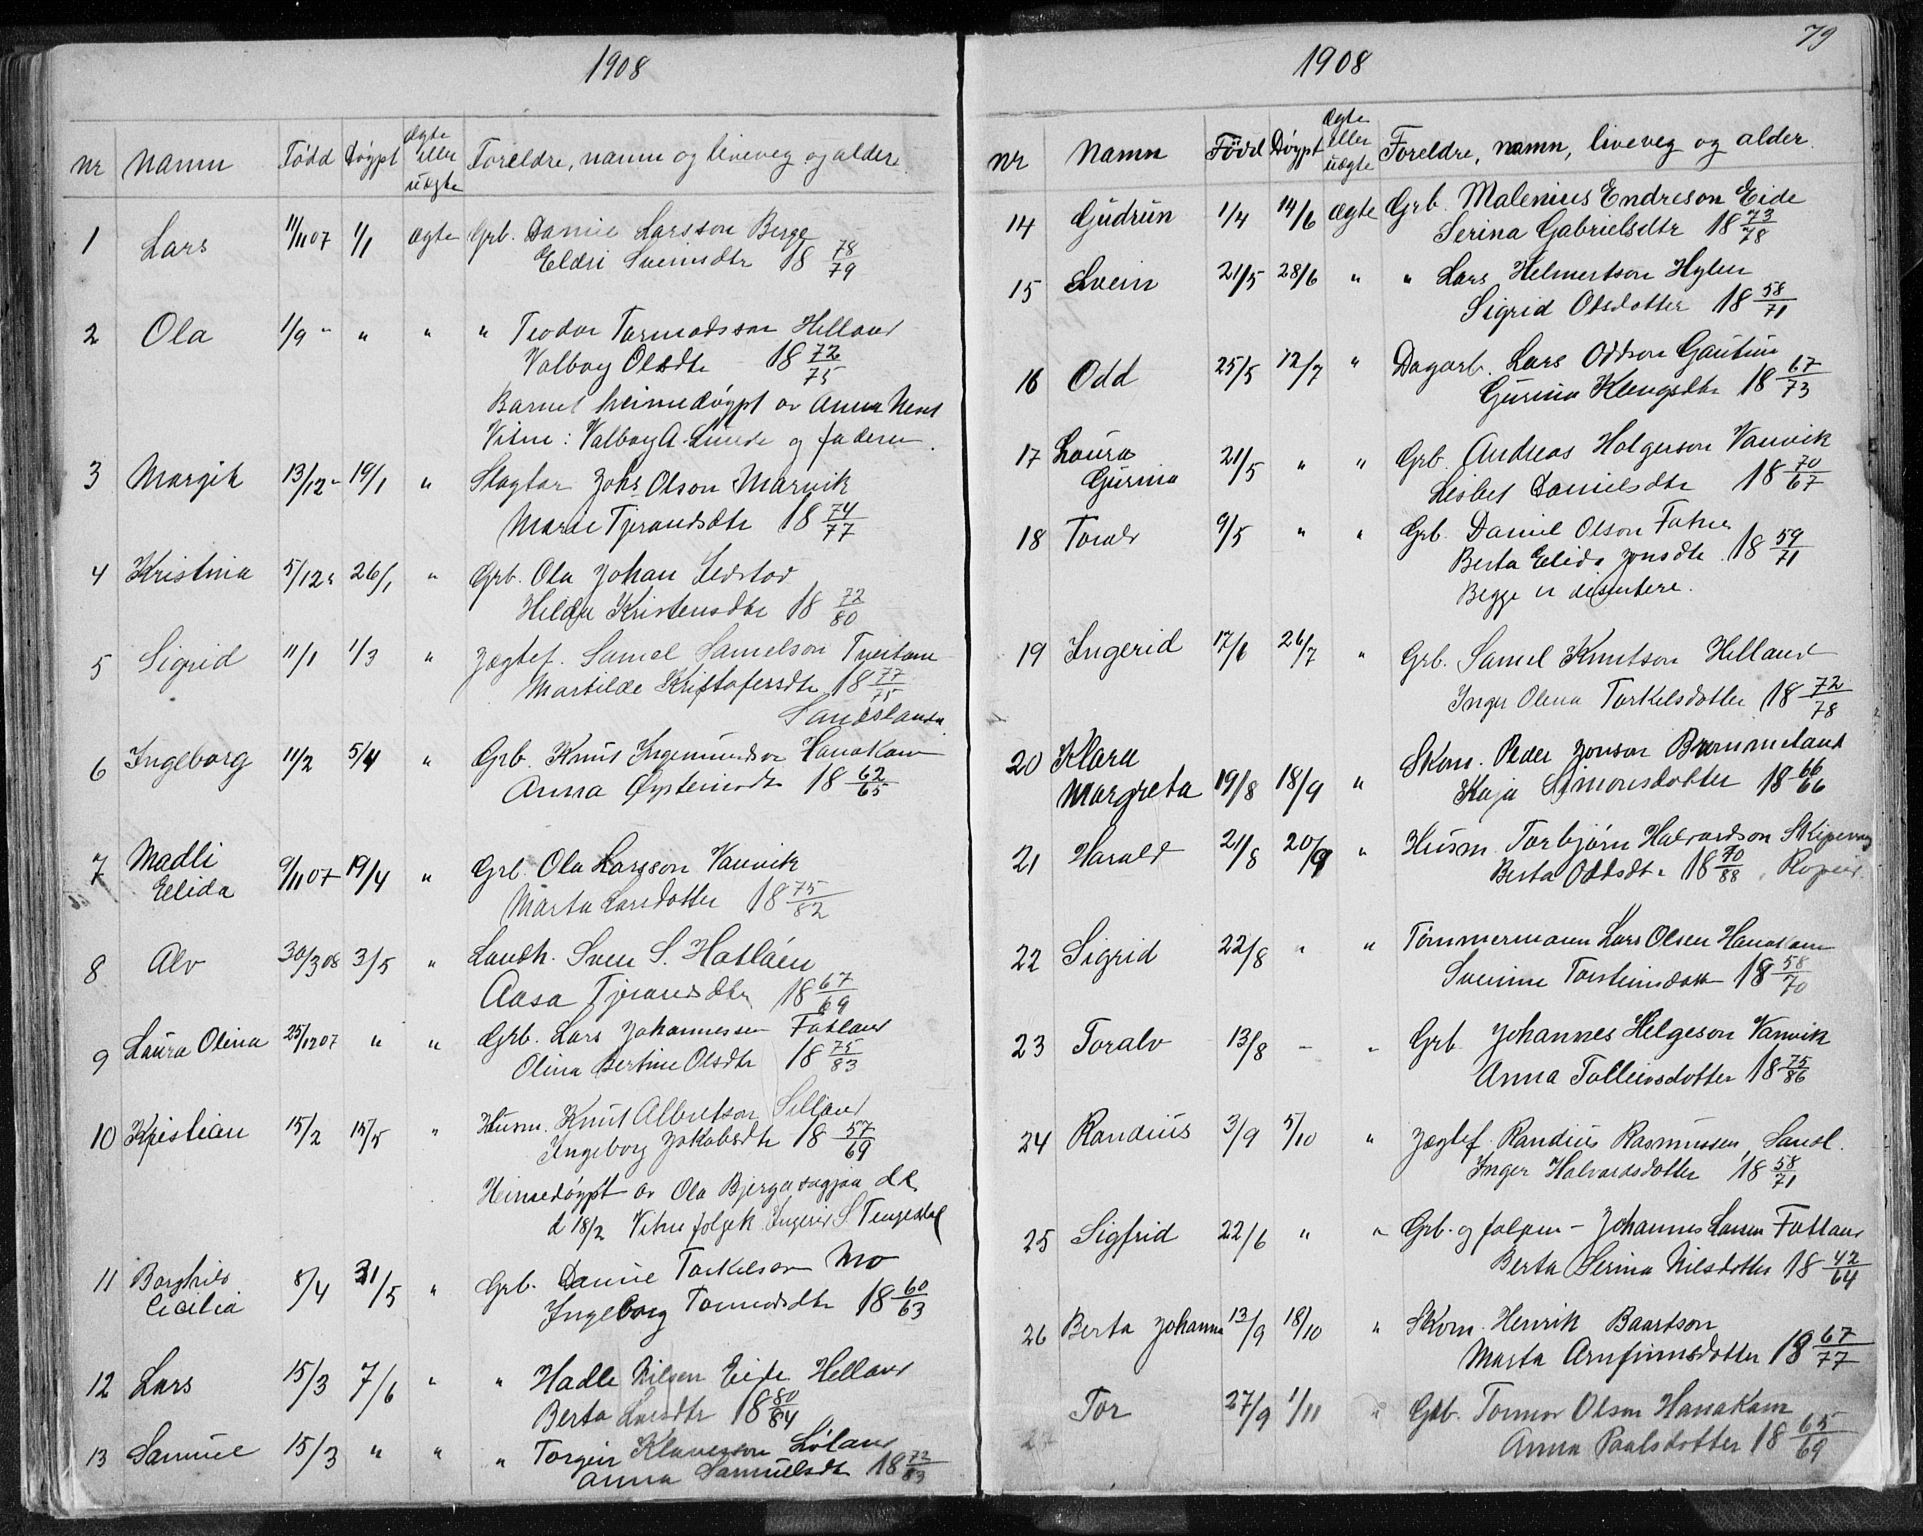 1908
nr Namn Född Döypt ægte eller uægte Foreldre, namn og liveveg og alder.
1 Lars 11/11 07 1/1 ægte Grb. Daniel Larsson Berge
Eldri Sveinsdtr 18 78/79
2 Ola 1/9 " " " " Teodor Tormodsson Helland
Valborg Olsdtr 18 72/75
Barnet heimedöypt av Anna Nesst
Vitne: Valborg A. Lunde og faderen.
3 Margit 13/12 " 19/1 " Slagtar Johs Olson Marvik
Marie Tjerandsdtr 18 74/77
4 Kristina 5/12 " 26/1 " Grb. Ola Johan
Helga Kristensdtr 18 72/80
5 Sigrid 11/1 1/3 " Jægtef. Samel Samelson
Martilde Kristofersdtr 18 77/75
Sandslandet
6 Ingeborg 11/2 5/4 " Grb. Knut Ingemundson Hanakam
Anna Øysteinsdtr 18 62/65
7 Madli 9/11 07 19/4 " Grb. Ola Larsson Vanvik
Elida Marta Larsdotter 18 75/82
8 Alv 30/3 08 3/5 " Landh. Sven S. Hatløen
Aasa Tjerandsdtr 18 67/69
9 Laura Olina 25/12 07 " " Grb. Lars Johannessen Fatland
Olina Bertine Olsdtr 18 75/83
10 Kristian 15/2 15/5 " Husm. Knut Albretson Selland
Ingeborg Jakobsdtr 18 57/69
Heimedöypt av Ola Bjerga
d 18/2 Vitne Ingerid S Tengesdal
11 Borghild 8/4 31/5 " Grb. Daniel Torkelson Mo
Cicilia Ingeborg Tormodsdtr 18 60/63
12 Lars 15/3 7/6 " " Hadle Nilsen Eide Helland
Berta Larsdtr 18 80/84
13 Samuel 15/3 " " " Torgeir Klaverson Løland
Anna Samuelsdtr 18 72/83
79
1908
nr Namn Född Döypt ægte eller uægte Foreldre, namn, liveveg og alder.
14 Gudrun 1/4 14/6 ægte Grb. Malenius Endreson Eide
Serina Gabrielsdtr 18 73/78
15 Svein 21/5 28/6 " " Lars Helmertson Hylen
Sigrid Olsdotter 18 58/71
16 Odd 25/5 12/7 " Dagarb. Lars Oddson Gautun
Gurina 18 67/73
17 Laura 21/5 " " Grb. Andreas Holgerson Vanvik
Gurina Lisbet Danielsdtr 18 70/67
18 Toralv 9/5 " " Grb. Daniel Olson Fatnes
Berta Elida Jonsdtr 18 59/71
Begge er disentere.
19 Ingerid 17/6 26/7 " Grb. Samel Knutson Helland
Inger Olena Torkelsdotter 18 72/78
20 Klara Skom. Peder Jonson Brommeland
Margreta 19/8 18/9 " Kaja Simonsdotter 18 66/66
21 Harald 21/8 20/9 " Husm. Torbjörn Halvardson
Berta Oddsdtr 18 70/88, Ropeid.
22 Sigrid 22/8 " " Tömmermann Lars Olsen Hanakam
Sverine Torsteinsdotter 18 58/70
23 Toralv 13/8 — " Grb. Johannes Helgeson Vanvik
Anna Tolleivsdotter 18 75/86
24 Randius 3/9 5/10 " Jægtef. Randius Rasmussen, Sandl.
Inger Halvardsdotter 18 58/71
25 Sigfrid 22/6 " " Grb. og Johannes Larsen Fatland
Berta Serina Nilsdotter 18 42/64
26 Berta Johanna 13/9 18/10 " Skom. Henrik Baartson
Marta Arnfinnsdotter 18 67/77
27 Tor 27/9 1/11 " Grb. Tormod Olson Hanakam
Anna Paalsdotter 18 65/69